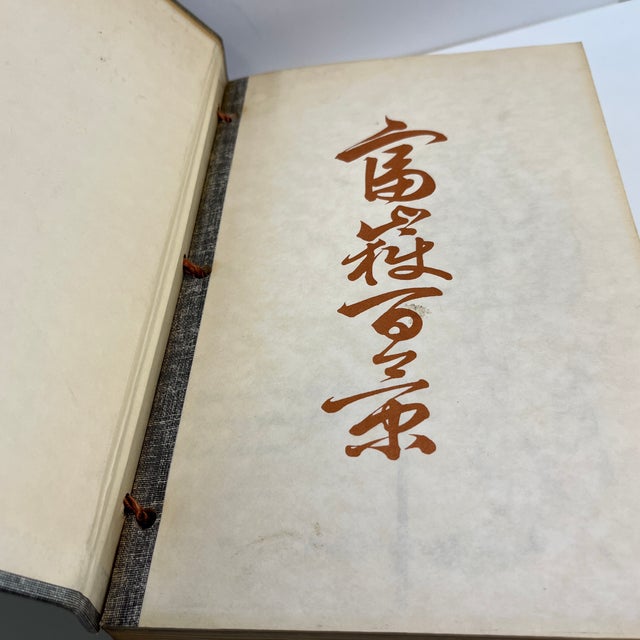 富嶽百景